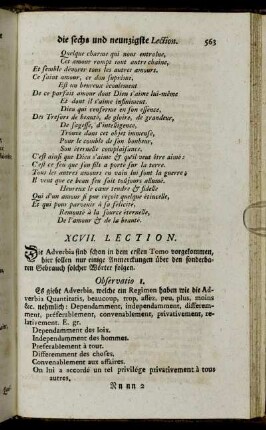 die sechs und neunzigste Lection. 563
Quelque charme qui nous entraîne,
Cet amour rompt tout autre chaîne,
Et semble dévorer tous les autres amours.
Ce saint amour, ce don suprême,
Est un heureux écoulement
De ce parfait amour dont Dieu s'aime lui-même
Et dont il s'aime infiniment.
Dieu qui renferme en son essence,
Des Tresors de beauté, de gloire, de grandeur,
De sagesse, d'intelligence,
Trouve dans cet objet immense,
Pour le comble de son bonheur,
Son éternelle complaisance.
C'est ainsi que Dieu s'aime & qu'il veut être aimé:
C'est ce feu que son fils a porté sur la terre.
Tous les autres amours en vain lui font la guerre;
Il veut que ce beau feu soit toûjours allumé.
Heureux le cœur tendre & fidelle
Qui d'un amour si pur reçoit quelque étincelle,
Et qui pour parvenir à sa felicité,
Remonte à la source éternelle,
De l'amour & de la beauté.
XCVII. LECTION.
Die Adverbia sind schon in dem ersten Tomo vorgekommen,
hier sollen nur einige Anmerckungen über den sonderba-
ren Gebrauch solcher Wörter folgen.
Observatio I.
Es giebt Adverbia, welche ein Regimen haben wie die Ad-
verbia Quantitatis, beaucoup, trop, assez, peu, plus, moins
&c. nehmlich: Dependamment, independamment, differem-
ment, préferablement, convenablement, privativement, re-
lativement. E. gr.
Dependamment des loix.
Independamment des hommes.
Preferablement à tout.
Differemment des choses.
Convenablement aux affaires.
On lui a accordé un tel privilége privativement à tous
autres,
Nn nn 2